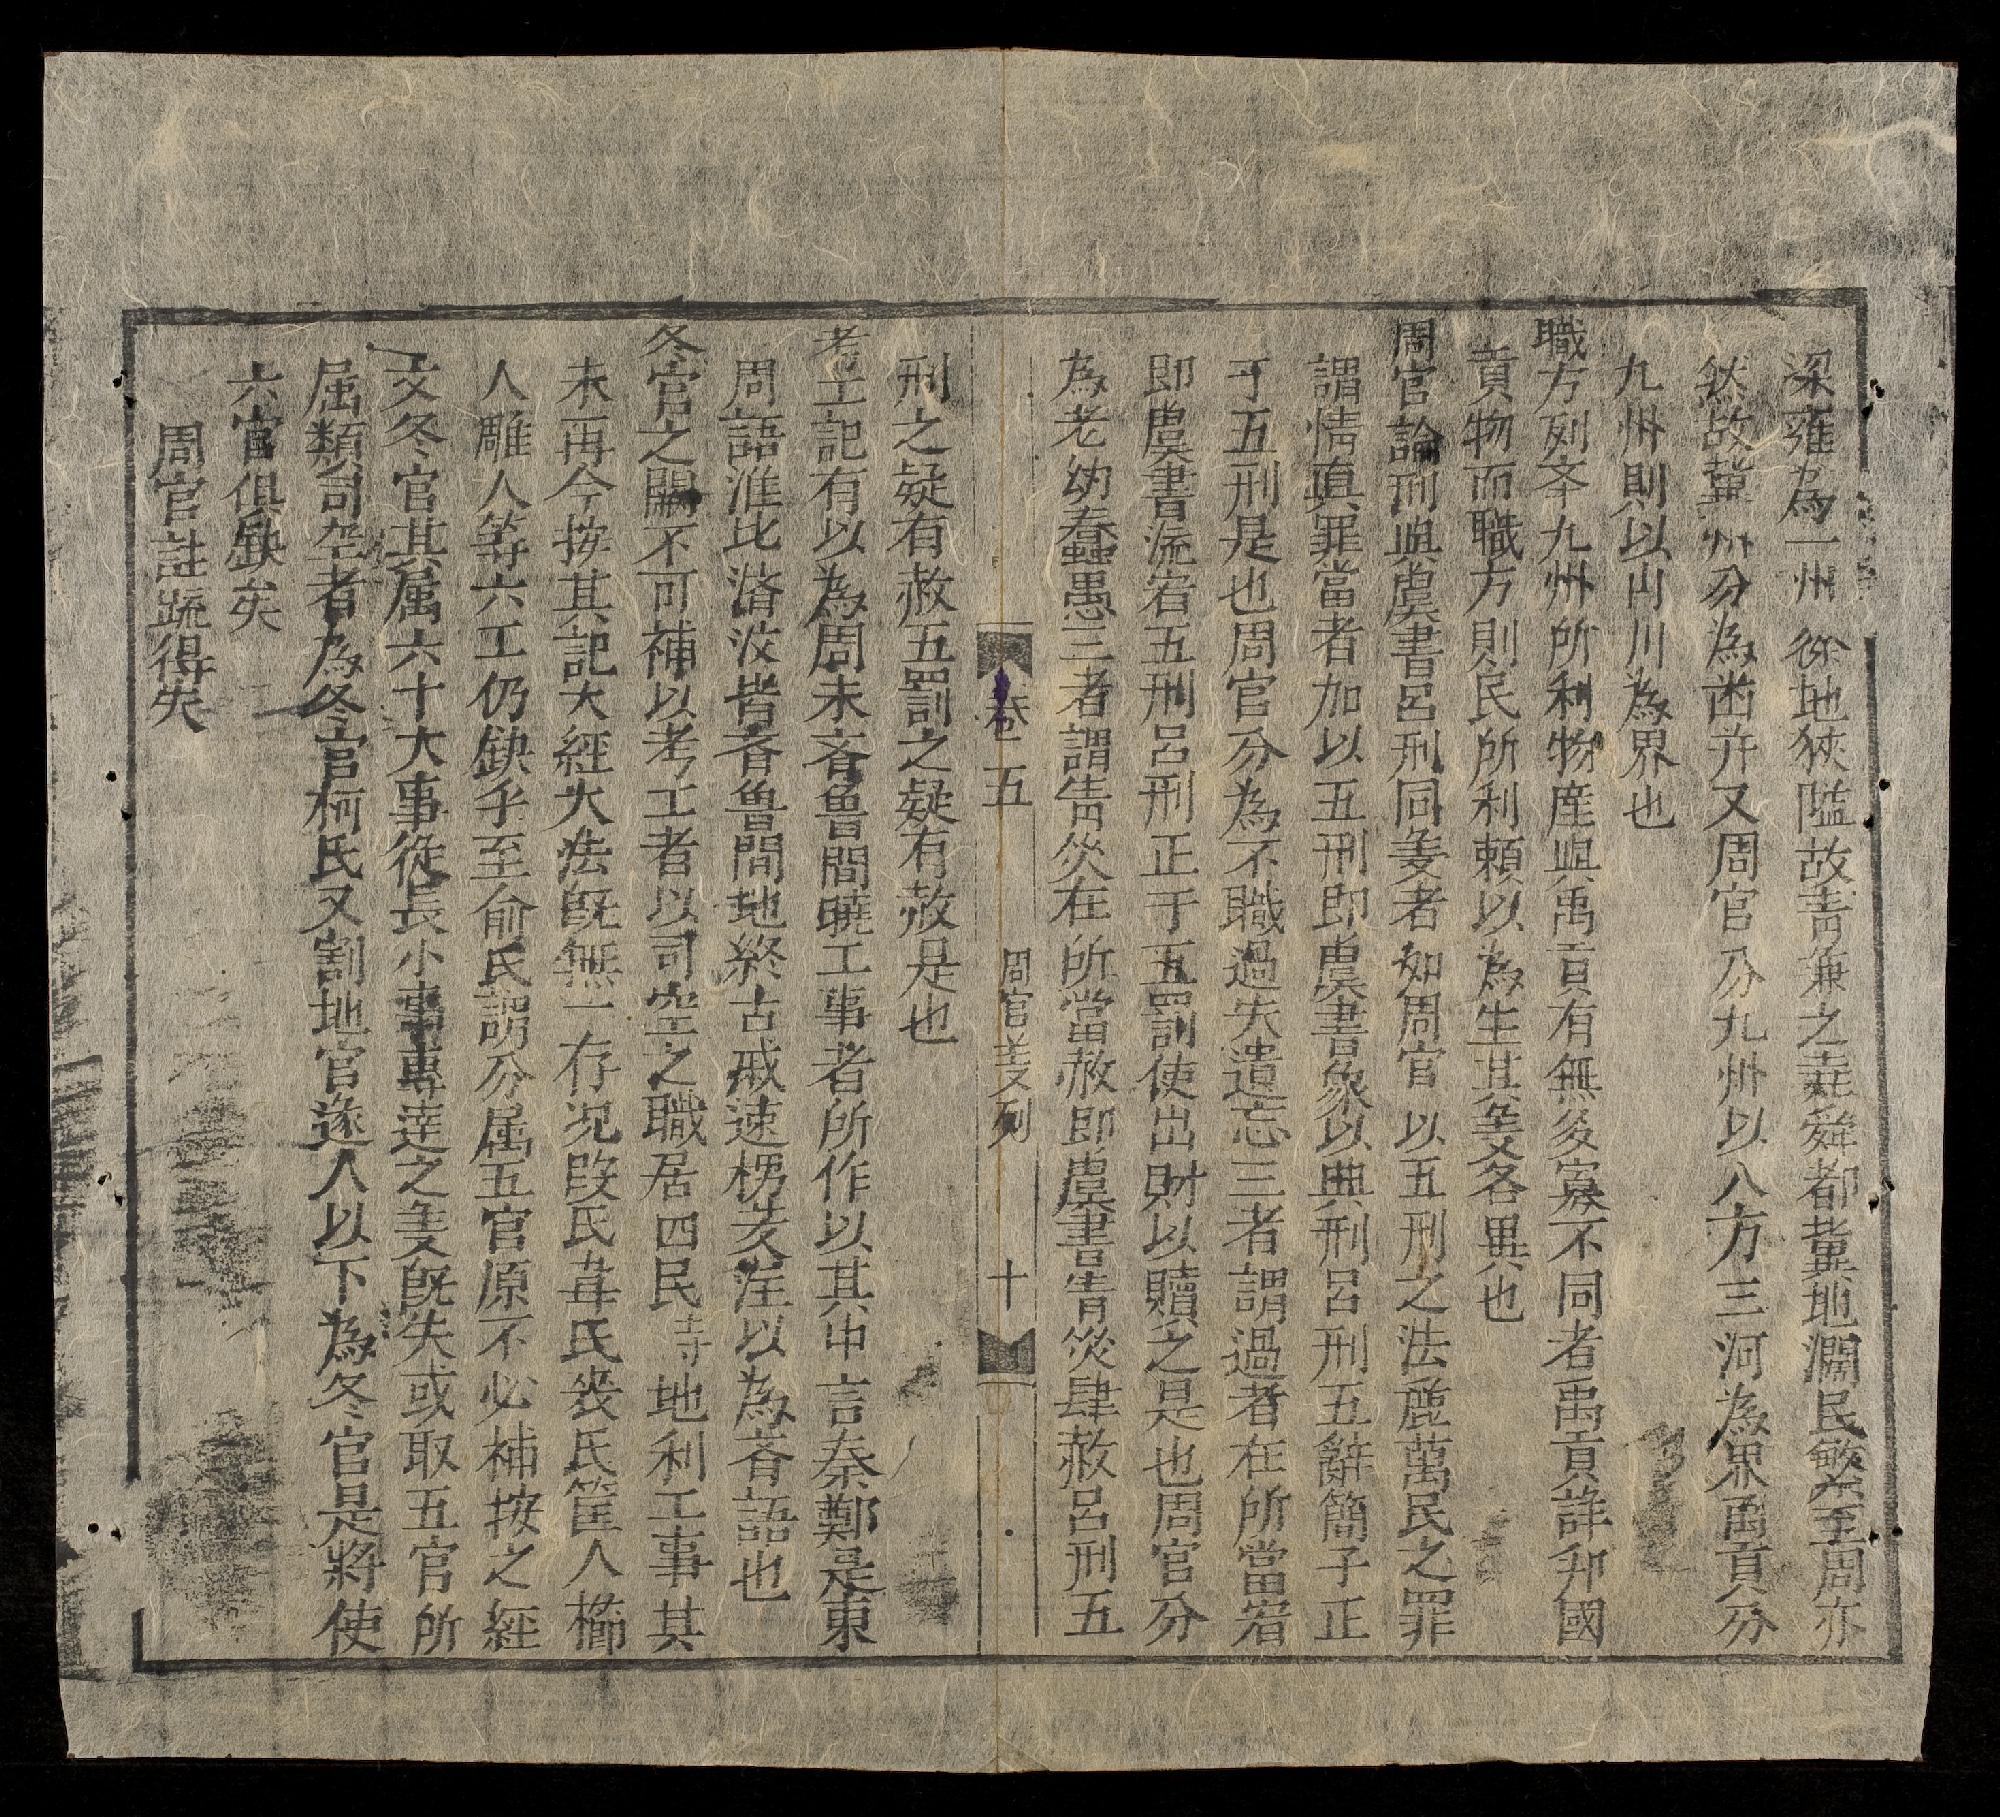 梁雍為一州徐地狹隘故青兼之堯舜都冀地濶民繁至周亦
然故冀州分為幽并又周官分九州以八方三河為界禹貢分
九州則以山川為界也
職方列卒九州所利物産與禹貢有無多寡不同者禹貢詳邦國
貢物而職方則民所利賴以為生其义各異也
周官論刑與虞書呂刑同义者如周官以五刑之法麗萬民之罪
謂情真罪當者加以五刑即虞書象以典刑呂刑五辭簡孚正
于五刑是也周官分為不職過失遺忘三者謂過者在所當宥
即虞書流宥五刑呂刑正于五罰使出財以贖之是也周官分
為老幼蠢愚三者謂眚災在所當赦即虞書眚災肆赦呂刑五
卷五 周官义列 十
刑之疑有赦五罰之疑有赦是也
考工記有以為周末斉魯間曉工事者所作以其中言秦鄭是東
周語淮比济汶皆斉魯間地終古戚速椘茭注以為斉語也
冬官之闕不可補以考工者以司空之職居四民时地利工事其
未再今按其記大經大法既無一存况段氏韋氏裘氏筐人櫛
人雕人等六工仍缺乎至俞氏謂分属五官原不必補按之經
文冬官其属六十大事従長小事専達之义既失或取五官所
屈類司空者為冬官柯氏又割地官遂人以下為冬官是將使
六官俱缺矣
周官註疏得失